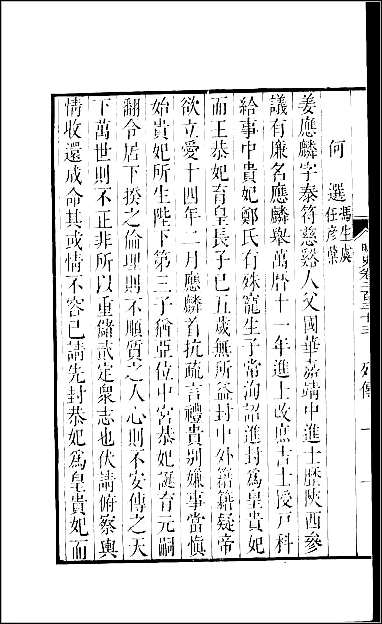 何選馮生虞任彥蘗
姜應麟字泰符慈谿人父國華嘉靖中進士歷陝西參
議有廉名應麟舉萬曆十一年進士改庶吉士授戶科
給事中貴妃鄭氏有殊寵生子常洵詔進封爲皇貴妃
而王恭妃育皇長子已五歲無所益封中外籍籍疑帝
欲立愛十四年二月應麟首抗疏言禮貴別嫌事當愼
始貴妃所生陛下第三子猶亞位中宮恭妃誕育元嗣
翻令居下揆之倫理則不順質之人心則不安傳之天
下萬世則不正非所以重儲貳定衆志也伏請俯察輿
情收還成命其或情不容已請先封恭妃爲皇貴妃而
明史卷二百三十三 列傳 一